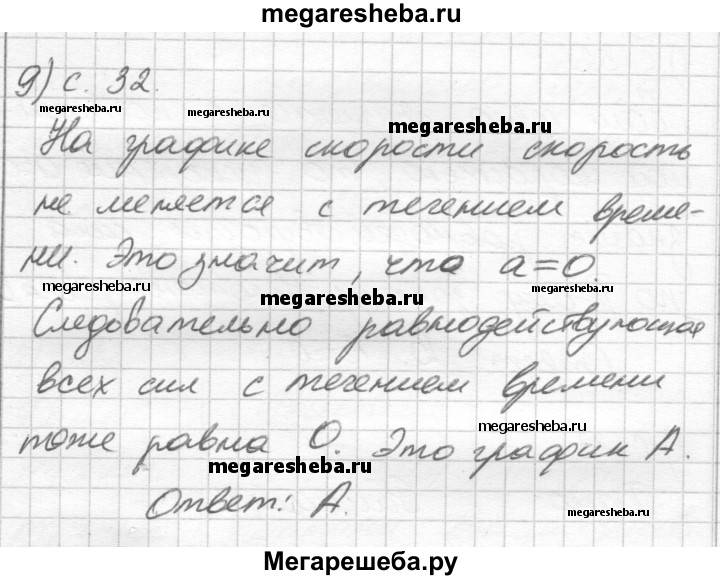 megaresheba.ru
9) с. 32.
megaresheba.ru
megaresheba.ru
megaresheba.ru
На графике скорости скорость
не меняется с течением време-
ни. Это значит, что a=0.
megaresheba.ru
megaresheba.ru
megaresheba.ru
Следовательно равнодействующая
всех сил с течением времени
тоже равна 0. Это график А.
megaresheba.ru
megaresheba.ru
Ответ: А.
megaresheba.ru
Мегарешеба.ру